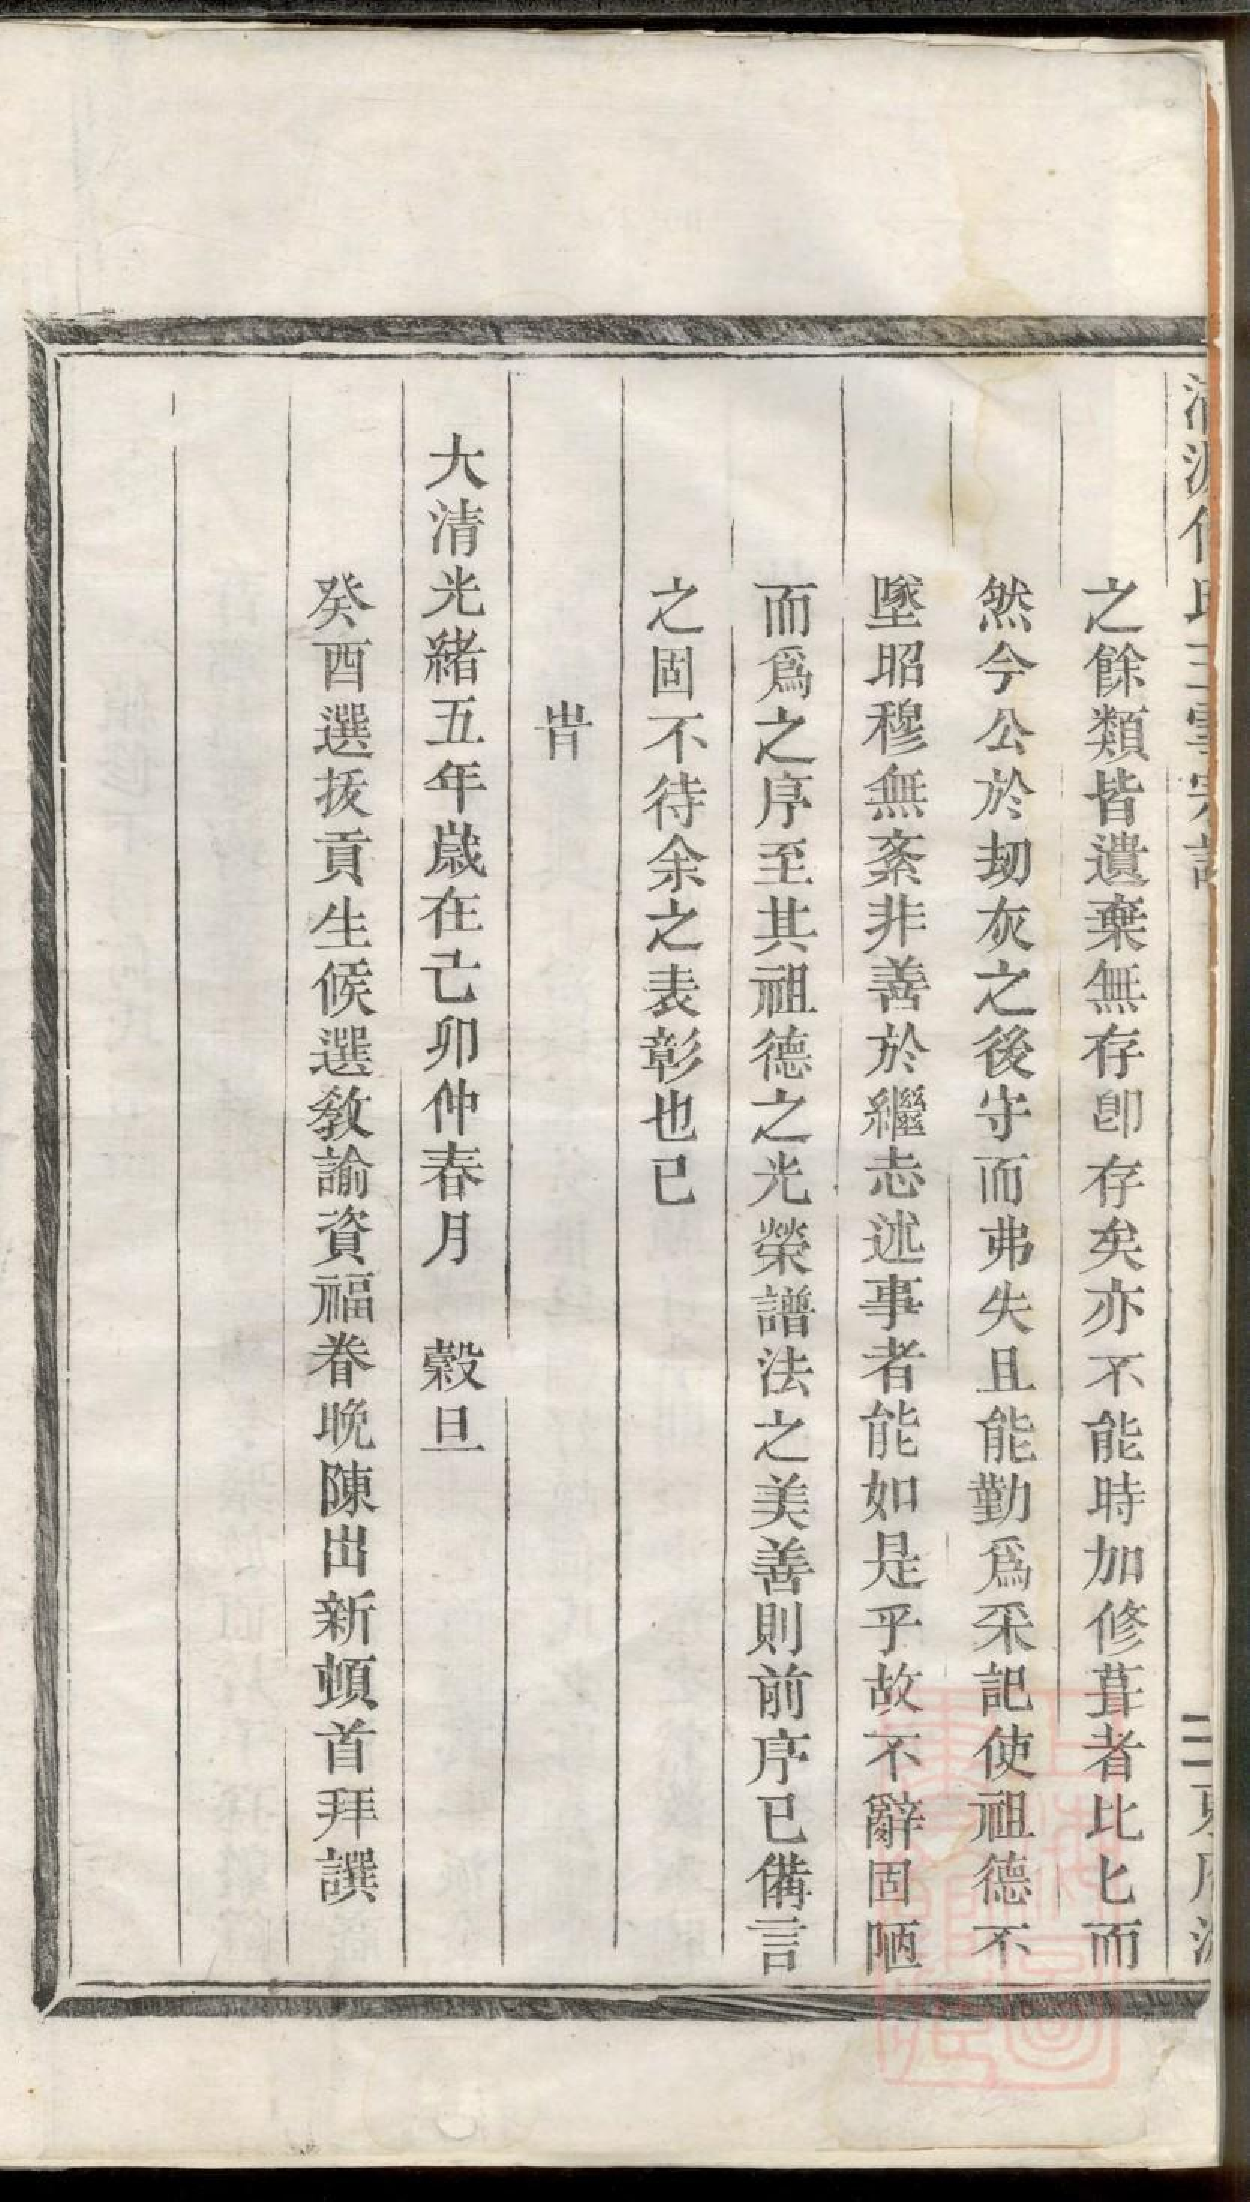 之餘類皆遺棄無存卽存矣亦不能時加修葺者比匕而
然今公於刧灰之後守而弗失且能勤爲采記使祖德不
墜昭穆無紊非善於繼志述事者能如是乎故不辭固陋
而爲之序至其祖德之光榮譜法之美善則前序已備言
之固不待余之表彰也已
旹
大清光緒五年歲在己卯仲春月 穀旦
癸酉選拔貢生候選教諭資福眷晚陳出新頓首拜譔